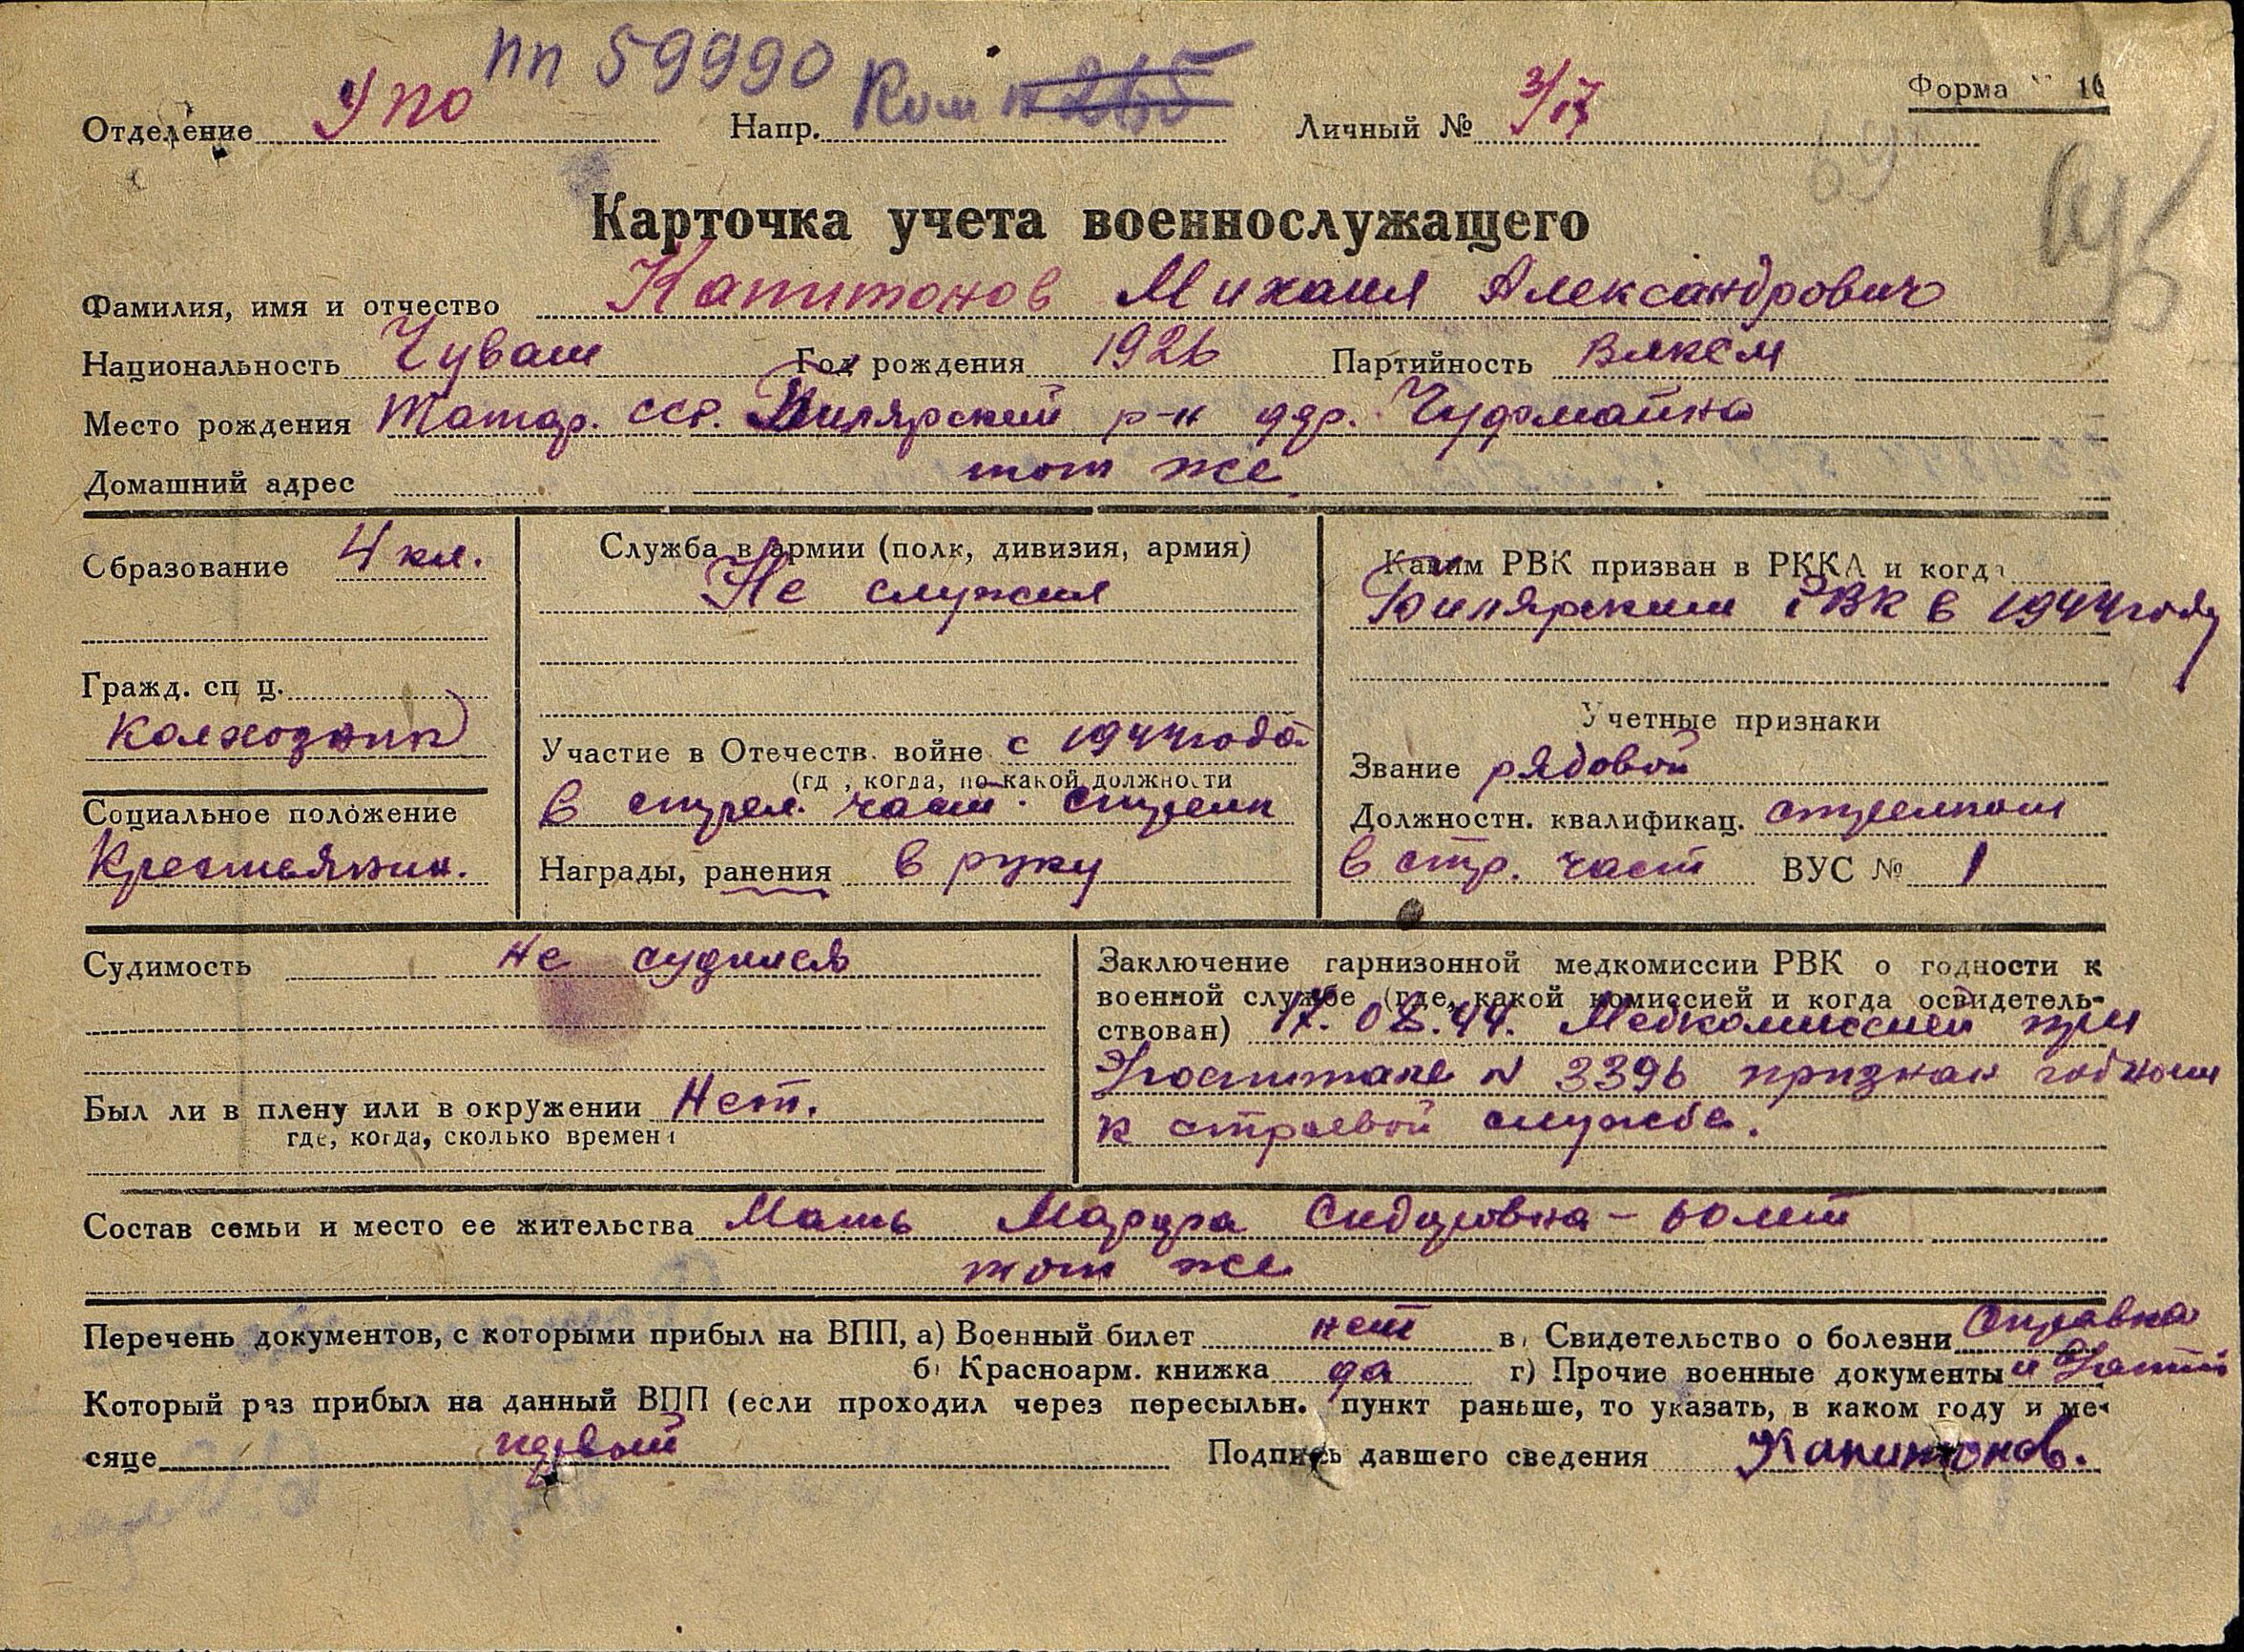 пп 59990
Отделение УПО Напр. Ком Личный № 3/17 Форма 10
Карточка учета военнослужащего
Фамилия, имя и отчество Капитонов Михаил Александрович
Национальность Чуваш Год рождения 1926 Партийность ВЛКСМ
Место рождения Татар. ССР. Билярский р-н дер.
Домашний адрес тот же
Образование 4 кл.
Гражд. спец.
колхозник
Социальное положение
Крестьянин.
Служба в армии (полк, дивизия, армия)
Не служил
Участие в Отечеств. войне с 1944 года
(где, когда, по какой должности
в стрел. част. стрелк
Награды, ранения в руку
Каким РВК призван в РККА и когда
Билярским РВК в 1944 году
Учетные признаки
Звание рядовой
Должностн. квалификац. стрелком
в стр. част ВУС № 1
Судимость не судился
Был ли в плену или в окружении Нет.
где, когда, сколько времени
Заключение гарнизонной медкомиссии РВК о годности к
военной службе (где, какой комиссией и когда освидетель-
ствован) Медкомиссией при
Госпитале N 3396 признан годным
к строевой службе.
Состав семьи и место ее жительства Мать Сидоровна - 60 лет
тот же
Перечень документов, с которыми прибыл на ВПП, а) Военный билет нет в) Свидетельство о болезни Справка
б) Красноарм. книжка да г) Прочие военные документы и
Который раз прибыл на данный ВПП (если проходил через пересыльн. пункт раньше, то указать, в каком году и ме-
сяце первый Подпись давшего сведения Капитонов.